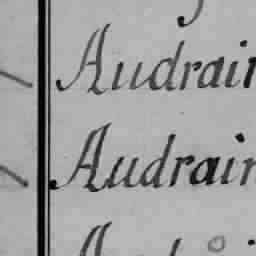 Audrain
Audrain